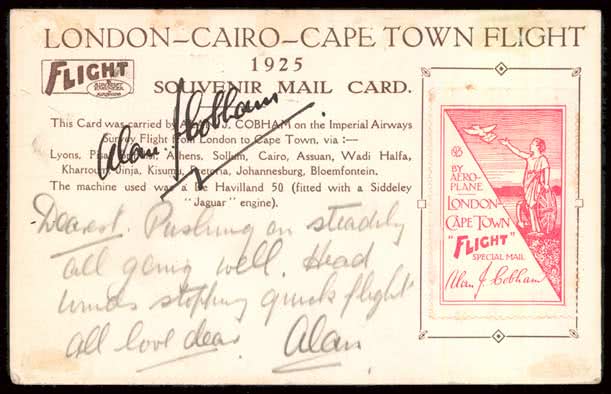 LONDON–CAIRO–CAPE TOWN FLIGHT
1925
SOUVENIR MAIL CARD.
FLIGHT
This Card was carried by J. COBHAM on the Imperial Airways
Survey Flight from London to Cape Town, via :—
Lyons, Athens, Sollum, Cairo, Assuan, Wadi Halfa,
Khartoum, Jinja, Kisumu, Pretoria, Johannesburg, Bloemfontein.
The machine used was a De Havilland 50 (fitted with a Siddeley
"Jaguar" engine).
Alan J. Cobham
Dearest. Pushing on steadily
all going well. Head
winds stopping quick flight
all love dear Alan
BY
AERO-
PLANE
LONDON-
CAPE TOWN
"FLIGHT"
SPECIAL MAIL
Alan J Cobham